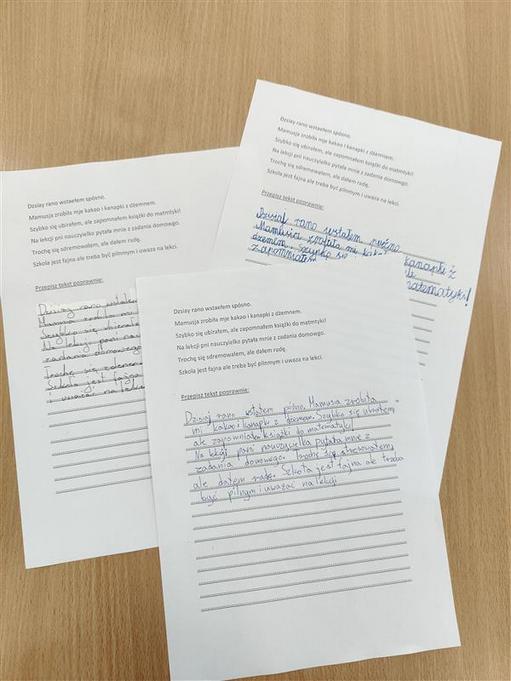 Dzsiay rano wstaełem spósno.
Mamusja zrobiła mje kakao i kanapki z dżemnem.
Szybko się ubirałem, ale zapomnałem książki do matmtyki!
Na lekcji pni nauczyielko pytała mnie z zadania domowego.
Trochę się sdremowałem, ale dałem rodę.
Szkoła jest fajna ale treba być pilnmym i uwaza na lekci.
Przepisz tekst poprawnie:
Dzisiaj rano wstałem
Mamusia zrobiła mi
Szybko się ubrałem
Na lekcji pani na
zadania domowego
Trochę się
Szkoła jest fajna
i uważać na lekcji
Dzsiay rano wstaełem spósno.
Mamusja zrobiła mje kakao i kanapki z dżemnem.
Szybko się ubirałem, ale zapomnałem książki do matmtyki!
Na lekcji pni nauczyielko pytała mnie z zadania domowego.
Trochę się sdremowałem, ale dałem rodę.
Szkoła jest fajna ale treba być pilnmym i uwaza na lekci.
Przepisz tekst poprawnie:
Dzisiaj rano wstałem późno
Mamusia zrobiła mi kakao kanapki z
dżemem. Szybko się
zapomniałem matematyki!
Dzsiay rano wstaełem spósno.
Mamusja zrobiła mje kakao i kanapki z dżemnem.
Szybko się ubirałem, ale zapomnałem książki do matmtyki!
Na lekcji pni nauczyielko pytała mnie z zadania domowego.
Trochę się sdremowałem, ale dałem rodę.
Szkoła jest fajna ale treba być pilnmym i uwaza na lekci.
Przepisz tekst poprawnie:
Dzisiaj rano wstałem późno. Mamusia zrobiła
mi kakao i kanapki z dżemem. Szybko się ubrałem
ale zapomniałam książki do matematyki!
Na lekcji pani nauczycielka pytała mnie z
zadania domowego. Trochę się stresowałem,
ale dałem radę. Szkoła jest fajna ale trzeba
być pilnym i uważać na lekcji